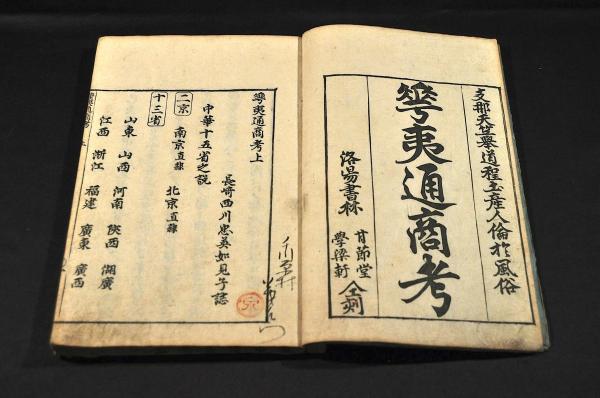 支那天竺道程土産人倫於風俗
華夷通商考
洛陽書林
甘節堂
學梁軒
仝刻
華夷通商考上
長崎西川忠英如見子誌
中華十五省之説
二京 南京直隷 北京直隷
十三省
山東 山西 河南 陝西 湖廣
江西 浙江 福建 廣東 廣西